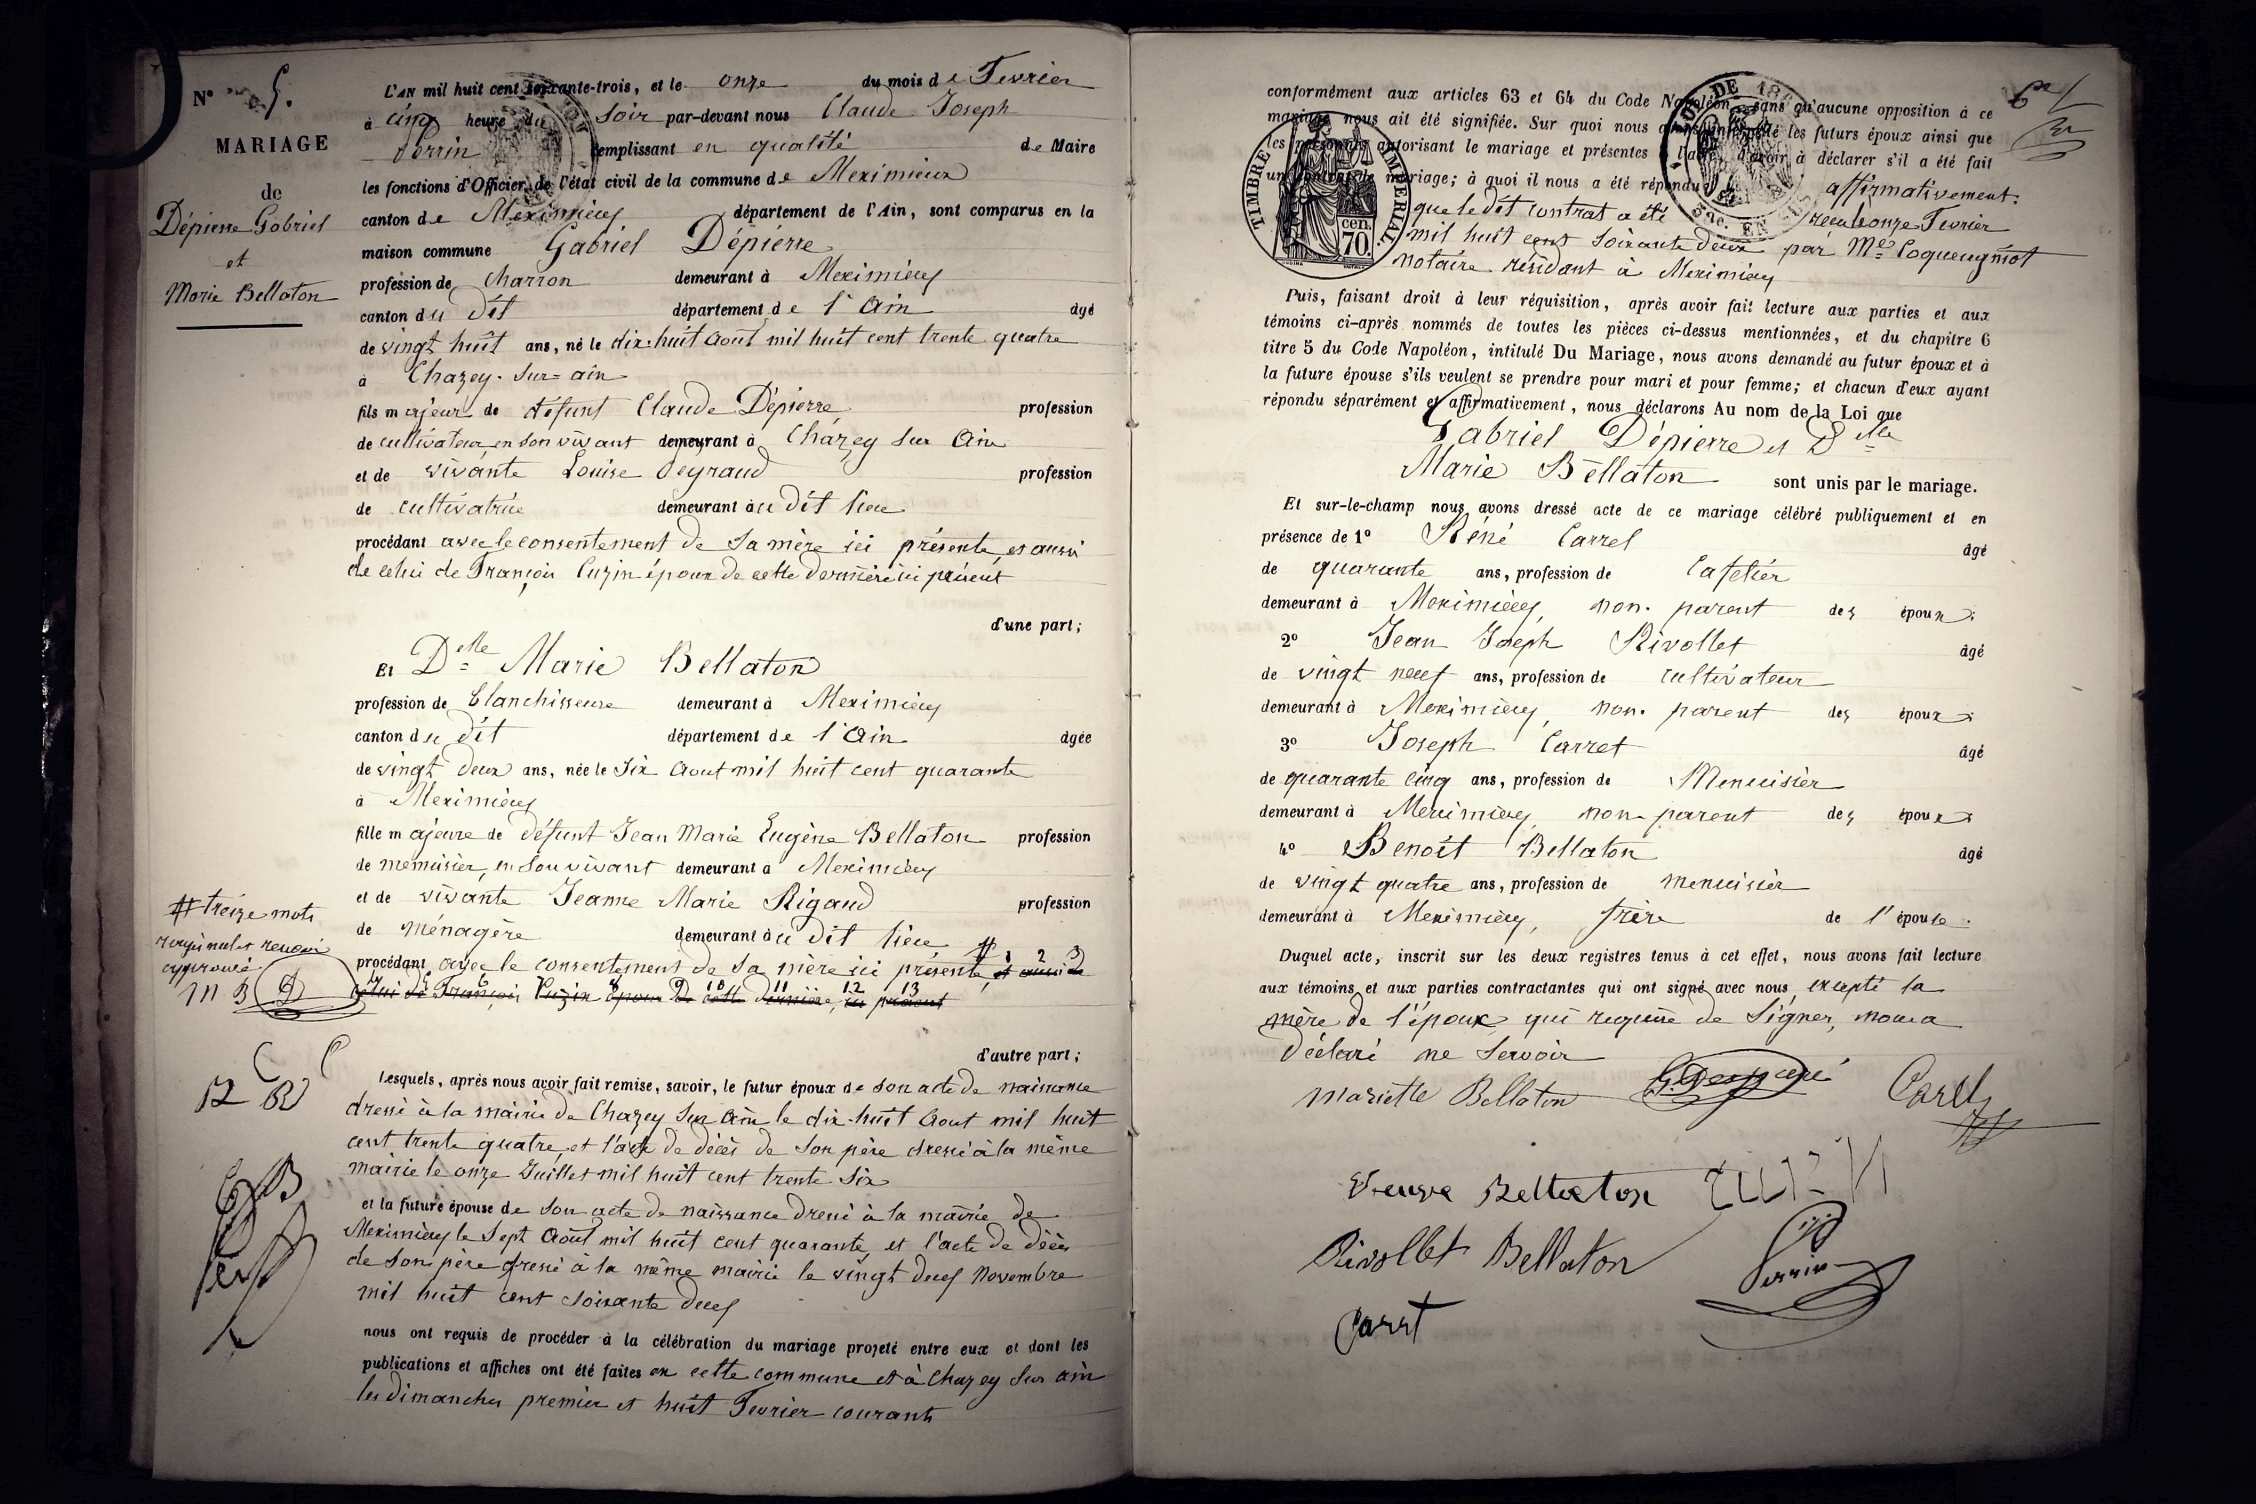 N° 5.
MARIAGE
de
Dépierre Gabriel
et
Marie Bellaton
L'AN mil huit cent soixante-trois, et le onze du mois de Fevrier
à cinq heure du soir par-devant nous Claude Joseph
Perrin remplissant en qualité de Maire
les fonctions d'Officier de l'état civil de la commune de Meximieux
canton de Meximieux département de l'Ain, sont comparus en la
maison commune Gabriel Dépierre
profession de Charron demeurant à Meximieux
canton du dit département de l'Ain âgé
de vingt huit ans, né le dix-huit Aout mil huit cent trente quatre
à Chazey-sur-ain
fils majeur de défunt Claude Dépierre profession
de cultivateur, en son vivant demeurant à Chazey sur Ain
et de vivante Louise Peyraud profession
de cultivatrice demeurant au dit lieu
procédant avec le consentement de sa mère ici présente, et aussi
de celui de François Cuzin époux de cette dernière ici présent
d'une part;
Et Delle Marie Bellaton
profession de blanchisseuse demeurant à Meximieux
canton du dit département de l'Ain âgée
de vingt deux ans, née le six Aout mil huit cent quarante
à Meximieux
fille majeure de défunt Jean Marie Eugène Bellaton profession
de menuisier, en son vivant demeurant à Meximieux
et de vivante Jeanne Marie Rigaud profession
de ménagère demeurant au dit lieu
procédant avec le consentement de sa mère ici présente, # et aussi de
celui de François Cuzin époux de cette dernière, ici présent
1 2 3 4 5 6 7 8 9 10 11 12 13
# treize mots
rayés nuls et renvoi
approuvé.
M B
d'autre part;
Lesquels, après nous avoir fait remise, savoir, le futur époux de son acte de naissance
dressé à la mairie de Chazey sur Ain le dix-huit Aout mil huit
cent trente quatre, et l'acte de décès de son père dressé à la même
mairie le onze Juillet mil huit cent trente six
et la future épouse de son acte de naissance dressé à la mairie de
Meximieux le sept Aout mil huit cent quarante, et l'acte de décès
de son père dressé à la même mairie le vingt deux Novembre
mil huit cent soixante deux
nous ont requis de procéder à la célébration du mariage projeté entre eux et dont les
publications et affiches ont été faites en cette commune et à Chazey sur ain
les dimanches premier et huit Fevrier courant
conformément aux articles 63 et 64 du Code Napoléon, sans qu'aucune opposition à ce
mariage nous ait été signifiée. Sur quoi nous avons interpellé les futurs époux ainsi que
les personnes autorisant le mariage et présentes à l'acte, d'avoir à déclarer s'il a été fait
un contrat de mariage; à quoi il nous a été répondu affirmativement.
que le dit contrat a été recu le onze Fevrier
mil huit cent soixante deux par Me Coqueugniot
notaire résidant à Meximieux
TIMBRE IMPERIAL
70 cen.
Puis, faisant droit à leur réquisition, après avoir fait lecture aux parties et aux
témoins ci-après nommés de toutes les pièces ci-dessus mentionnées, et du chapitre 6
titre 5 du Code Napoléon, intitulé Du Mariage, nous avons demandé au futur époux et à
la future épouse s'ils veulent se prendre pour mari et pour femme; et chacun d'eux ayant
répondu séparément et affirmativement, nous déclarons Au nom de la Loi que
Gabriel Dépierre et Delle
Marie Bellaton sont unis par le mariage.
Et sur-le-champ nous avons dressé acte de ce mariage célébré publiquement et en
présence de 1° Réné Carrel âgé
de quarante ans, profession de Cafetier
demeurant à Meximieux, non-parent des époux.
2° Jean Joseph Rivollet âgé
de vingt neuf ans, profession de cultivateur
demeurant à Meximieux, non-parent des époux
3° Joseph Carret âgé
de quarante cinq ans, profession de Menuisier
demeurant à Meximieux, non-parent des époux
4° Benoît Bellaton âgé
de vingt quatre ans, profession de menuisier
demeurant à Meximieux, frère de l'épouse.
Duquel acte, inscrit sur les deux registres tenus à cet effet, nous avons fait lecture
aux témoins et aux parties contractantes qui ont signé avec nous, excepté la
mère de l'époux qui requise de signer, nous a
déclaré ne savoir
Mariette Bellaton
Veuve Bellaton
Rivollet Bellaton
Perrin